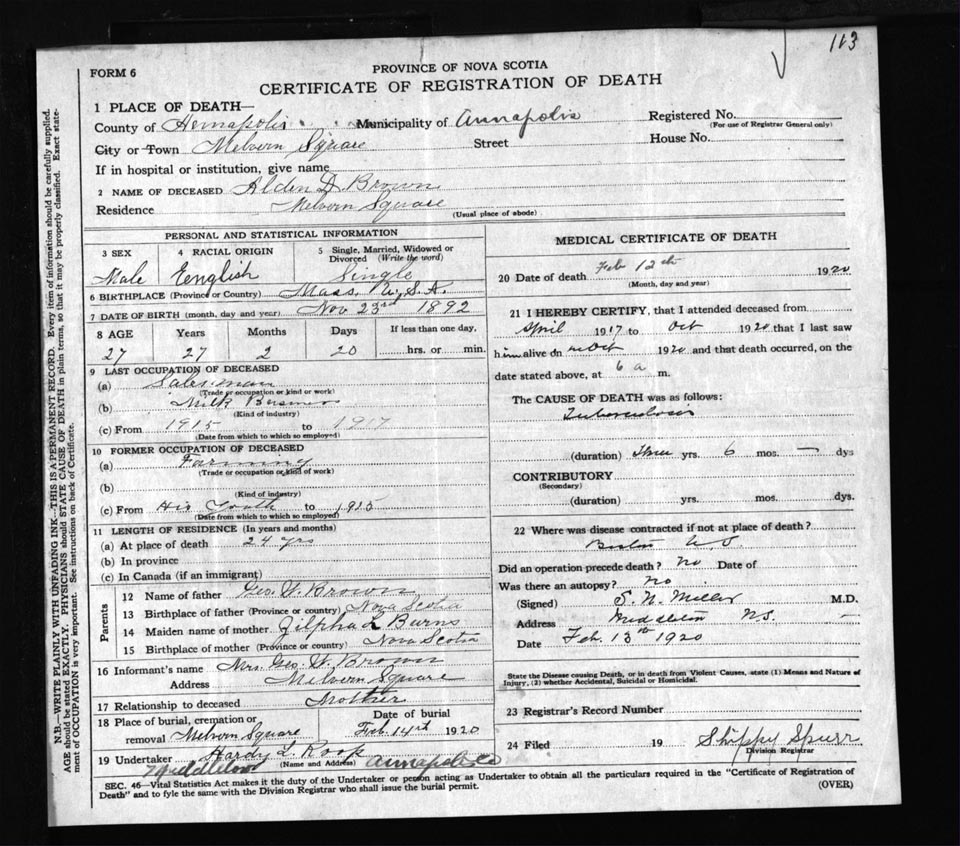 113
FORM 6
PROVINCE OF NOVA SCOTIA
CERTIFICATE OF REGISTRATION OF DEATH
1 PLACE OF DEATH—
County of Hennapolis Municipality of Annapolis
City or Town Melvern Square Street
If in hospital or institution, give name
2 NAME OF DECEASED Alden D. Brown
Residence Melvern Square
(Usual place of abode)
Registered No.
(For use of Registrar General only)
House No.
PERSONAL AND STATISTICAL INFORMATION
3 SEX 4 RACIAL ORIGIN 5 Single, Married, Widowed or Divorced (Write the word)
Male English Single
6 BIRTHPLACE (Province or Country) Mass, U.S.A.
7 DATE OF BIRTH (month, day and year) Nov 23rd 1892
8 AGE Years Months Days If less than one day.
27 27 2 20 hrs. or min.
9 LAST OCCUPATION OF DECEASED
(a) Salesman
(Trade or occupation or kind or work)
(b) Milk Business
(Kind of industry)
(c) From 1915 to 1917
(Date from which to which so employed)
10 FORMER OCCUPATION OF DECEASED
(a) Farming
(Trade or occupation or kind of work)
(b)
(Kind of industry)
(c) From His Youth to 1915
(Date from which to which so employed)
11 LENGTH OF RESIDENCE (In years and months)
(a) At place of death 24 yrs
(b) In province
(c) In Canada (if an immigrant)
Parents
12 Name of father Geo. W. Brown
13 Birthplace of father (Province or country) Nova Scotia
14 Maiden name of mother Zilpha L Burns
15 Birthplace of mother (Province or country) Nova Scotia
16 Informant's name Mrs. Geo. W. Brown
Address Melvern Square
17 Relationship to deceased Mother
18 Place of burial, cremation or removal Melvern Square Date of burial Feb. 14th 1920
19 Undertaker Hardy L. Roop
(Name and Address)
Middleton Annapolis Co
MEDICAL CERTIFICATE OF DEATH
20 Date of death Feb 12th 1920
(Month, day and year)
21 I HEREBY CERTIFY, that I attended deceased from
April 1917 to Oct 1920 that I last saw
him alive on Oct 1920 and that death occurred, on the
date stated above, at 6 a m.
The CAUSE OF DEATH was as follows:
Tuberculosis
(duration) Three yrs. 6 mos. — dys
CONTRIBUTORY
(Secondary)
(duration) yrs. mos. dys.
22 Where was disease contracted if not at place of death?
Boston U.S.
Did an operation precede death? No Date of
Was there an autopsy? No
(Signed) S. N. Miller M.D.
Address Middleton N.S.
Date Feb. 13th 1920
State the Disease causing Death, or in death from Violent Causes, state (1) Means and Nature of
Injury, (2) whether Accidental, Suicidal or Homicidal.
23 Registrar's Record Number
24 Filed 19 Shippy Spurr
Division Registrar
SEC. 46—Vital Statistics Act makes it the duty of the Undertaker or person acting as Undertaker to obtain all the particulars required in the "Certificate of Registration of
Death" and to fyle the same with the Division Registrar who shall issue the burial permit.
(OVER)
N.B.—WRITE PLAINLY WITH UNFADING INK—THIS IS A PERMANENT RECORD. Every item of information should be carefully supplied.
AGE should be stated EXACTLY. PHYSICIANS should STATE CAUSE OF DEATH in plain terms, so that it may be properly classified. Exact state-
ment of OCCUPATION is very important. See instructions on back of Certificate.